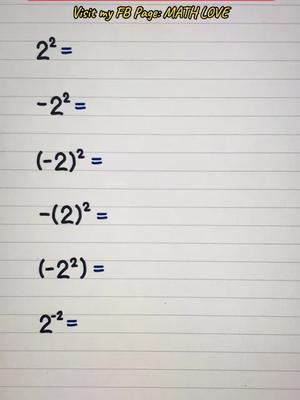 Visit my FB Page: MATH LOVE
2² =
-2² =
(-2)² =
-(2)² =
(-2²) =
2⁻² =